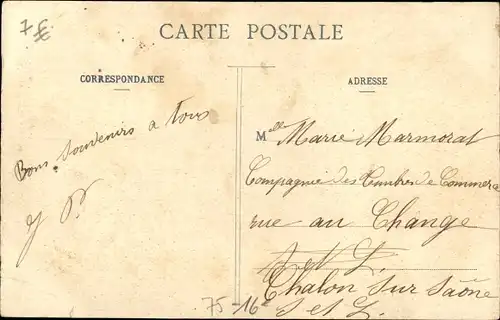 7€
CARTE POSTALE
CORRESPONDANCE
ADRESSE
Bons souvenirs a tous
Mlle Marie Marmorat
Compagnie des Timbres de Commerce
rue au Change
S et L.
Chalon sur Saône
S et L.
75-16e